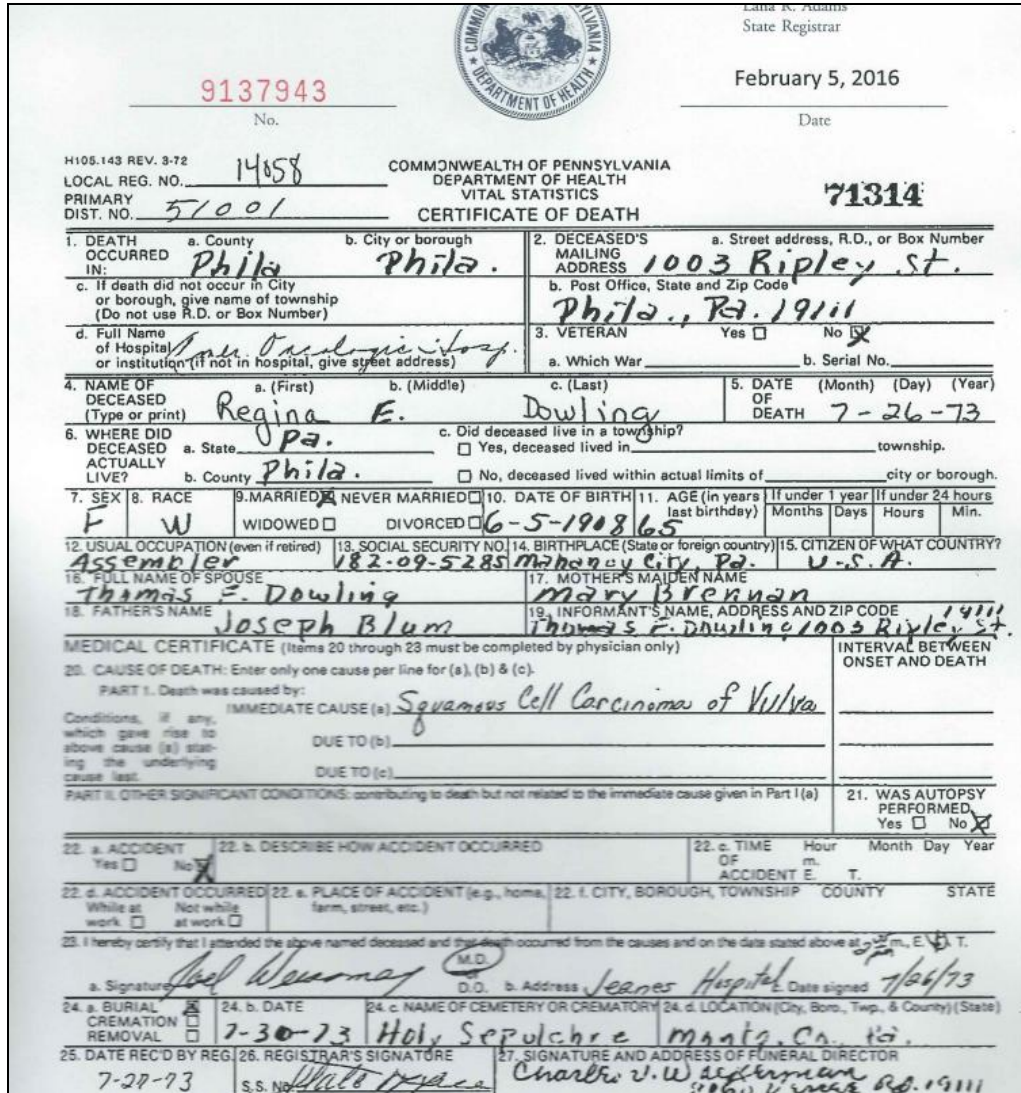 Lana R. Adams
State Registrar
COMMON PENNSYLVANIA
DEPARTMENT OF HEALTH
9137943
No.
February 5, 2016
Date
H105.143 REV. 3-72
LOCAL REG. NO. 14058
PRIMARY
DIST. NO. 51001
COMMONWEALTH OF PENNSYLVANIA
DEPARTMENT OF HEALTH
VITAL STATISTICS
CERTIFICATE OF DEATH
71314
1. DEATH OCCURRED IN: a. County Phila b. City or borough Phila.
c. If death did not occur in City
or borough, give name of township
(Do not use R.D. or Box Number)
d. Full Name
of Hospital Amer. Oncologic Hosp.
or institution (if not in hospital, give street address)
2. DECEASED'S MAILING ADDRESS a. Street address, R.D., or Box Number
1003 Ripley St.
b. Post Office, State and Zip Code
Phila., Pa. 19111
3. VETERAN Yes No X
a. Which War b. Serial No.
4. NAME OF DECEASED (Type or print) a. (First) b. (Middle) c. (Last)
Regina E. Dowling
5. DATE OF DEATH (Month) (Day) (Year)
7-26-73
6. WHERE DID DECEASED ACTUALLY LIVE? a. State Pa.
b. County Phila.
c. Did deceased live in a township?
Yes, deceased lived in township.
No, deceased lived within actual limits of city or borough.
7. SEX F
8. RACE W
9. MARRIED X NEVER MARRIED
WIDOWED DIVORCED
10. DATE OF BIRTH 6-5-1908
11. AGE (in years last birthday) 65
If under 1 year Months Days
If under 24 hours Hours Min.
12. USUAL OCCUPATION (even if retired) Assembler
13. SOCIAL SECURITY NO. 182-09-5285
14. BIRTHPLACE (State or foreign country) Mahanoy City, Pa.
15. CITIZEN OF WHAT COUNTRY? U.S.A.
16. FULL NAME OF SPOUSE
Thomas F. Dowling
17. MOTHER'S MAIDEN NAME
Mary Brennan
18. FATHER'S NAME Joseph Blum
19. INFORMANT'S NAME, ADDRESS AND ZIP CODE 19111
Thomas F. Dowling 1003 Ripley St.
MEDICAL CERTIFICATE (Items 20 through 23 must be completed by physician only)
INTERVAL BETWEEN
ONSET AND DEATH
20. CAUSE OF DEATH: Enter only one cause per line for (a), (b) & (c).
PART 1. Death was caused by:
IMMEDIATE CAUSE (a) Squamous Cell Carcinoma of Vulva
Conditions, if any,
which gave rise to
above cause (a) stat-
ing the underlying
cause last.
DUE TO (b)
DUE TO (c)
PART II. OTHER SIGNIFICANT CONDITIONS: contributing to death but not related to the immediate cause given in Part I (a)
21. WAS AUTOPSY
PERFORMED
Yes No X
22. a. ACCIDENT
Yes No X
22. b. DESCRIBE HOW ACCIDENT OCCURRED
22. c. TIME OF ACCIDENT Hour m. E. T. Month Day Year
22. d. ACCIDENT OCCURRED
While at work Not while at work
22. e. PLACE OF ACCIDENT (e.g., home, farm, street, etc.)
22. f. CITY, BOROUGH, TOWNSHIP COUNTY STATE
23. I hereby certify that I attended the above named deceased and that death occurred from the causes and on the date stated above at m., E. T.
a. Signature Joel M.D. D.O. b. Address Jeanes Hospital Date signed 7/26/73
24. a. BURIAL X
CREMATION
REMOVAL
24. b. DATE
7-30-73
24. c. NAME OF CEMETERY OR CREMATORY
Holy Sepulchre
24. d. LOCATION (City, Boro., Twp., & County) (State)
Montg. Co. Pa.
25. DATE REC'D BY REG.
26. REGISTRAR'S SIGNATURE
S.S. No
27. SIGNATURE AND ADDRESS OF FUNERAL DIRECTOR
Charles J.
Rd. 19111